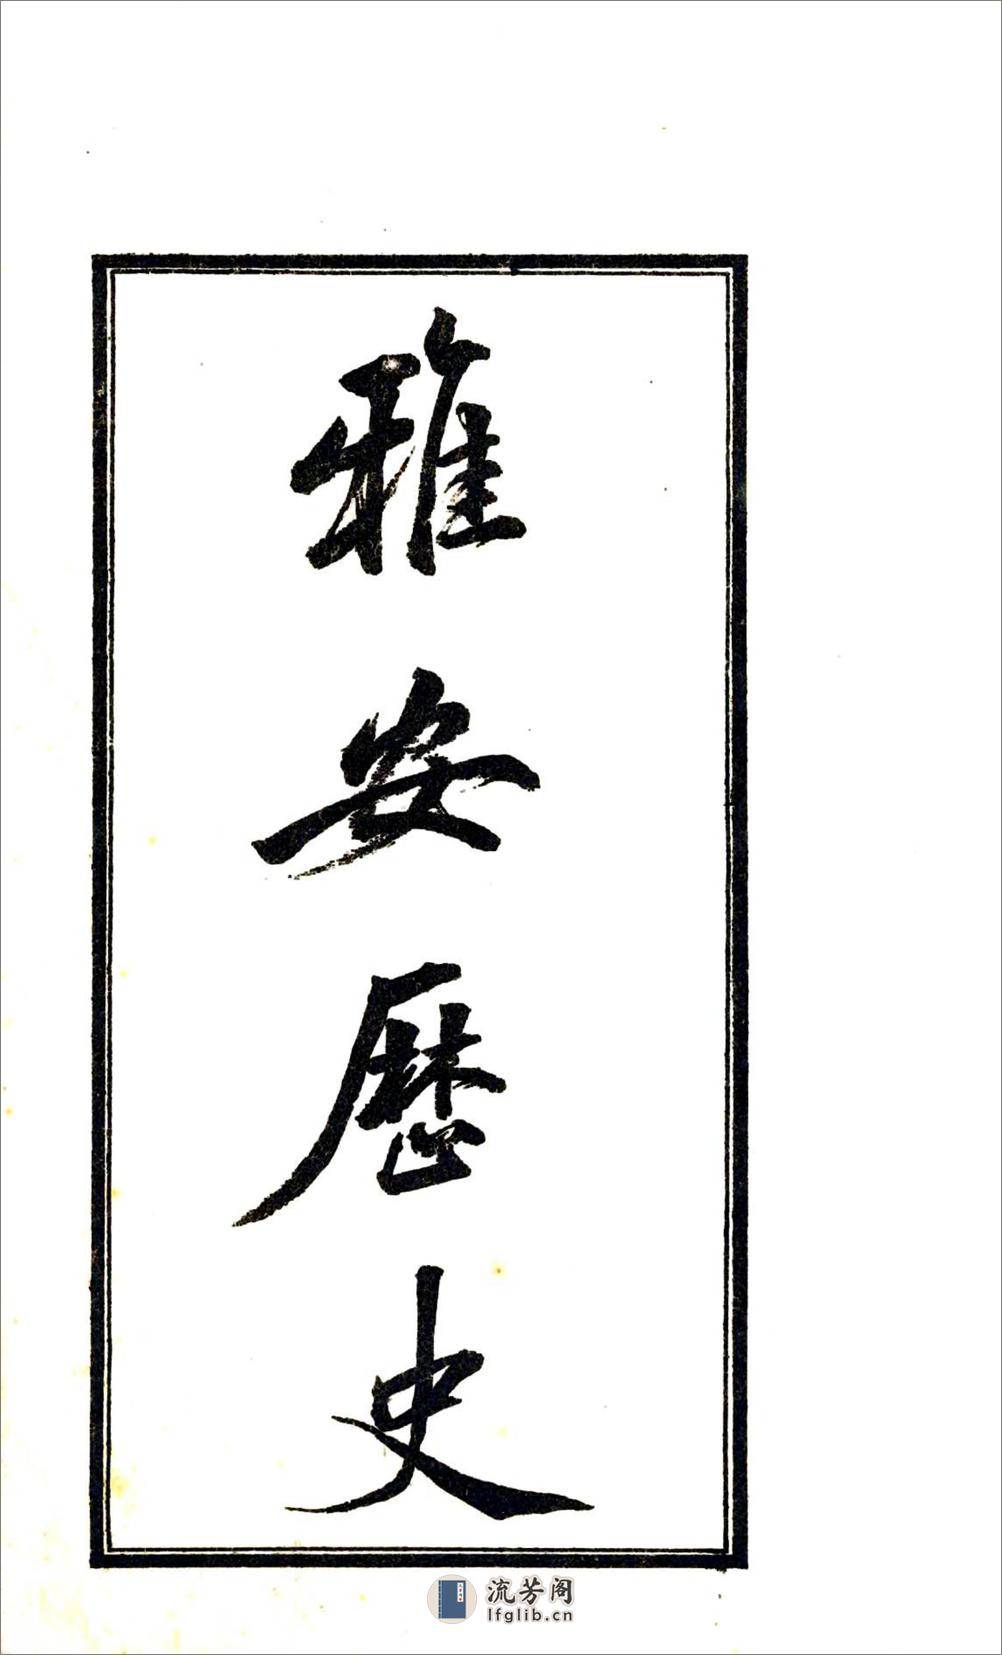 雅安歷史
流芳阁
lfglib.cn